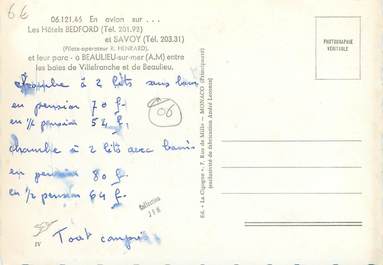 6€
06.121.45 En avion sur . . .
Les Hôtels BEDFORD (Tél. 201.92)
et SAVOY (Tél. 203.31)
(Pilote-opérateur R. HENRARD)
et leur parc - à BEAULIEU-sur-mer (A.M) entre
les baies de Villefranche et de Beaulieu.
chambre à 2 lits sans bain
en pension 70 f.
en ½ pension 54 f.
06
chambre à 2 lits avec bains
en pension 80 f.
en ½ pension 64 f.
Tout compris
IV
Collection
Ed. « La Cigogne », 7, Rue de Millo - MONACO (Principauté)
(exclusivité de fabrication André Leconte)
PHOTOGRAPHIE
VÉRITABLE